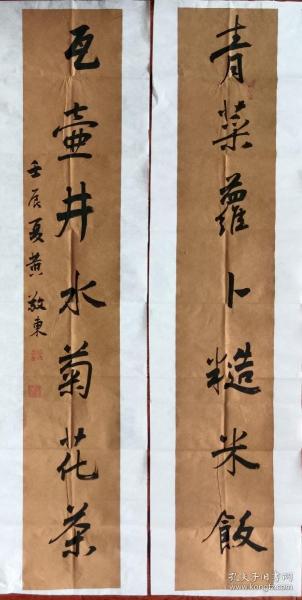 青菜蘿卜糙米飯
瓦壺井水菊花茶
壬辰夏黄敬東
孔夫子旧书网